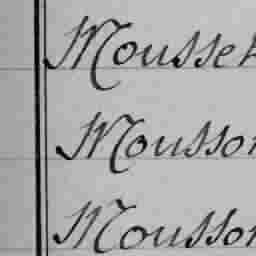 Mousset
Mousson
Mousson